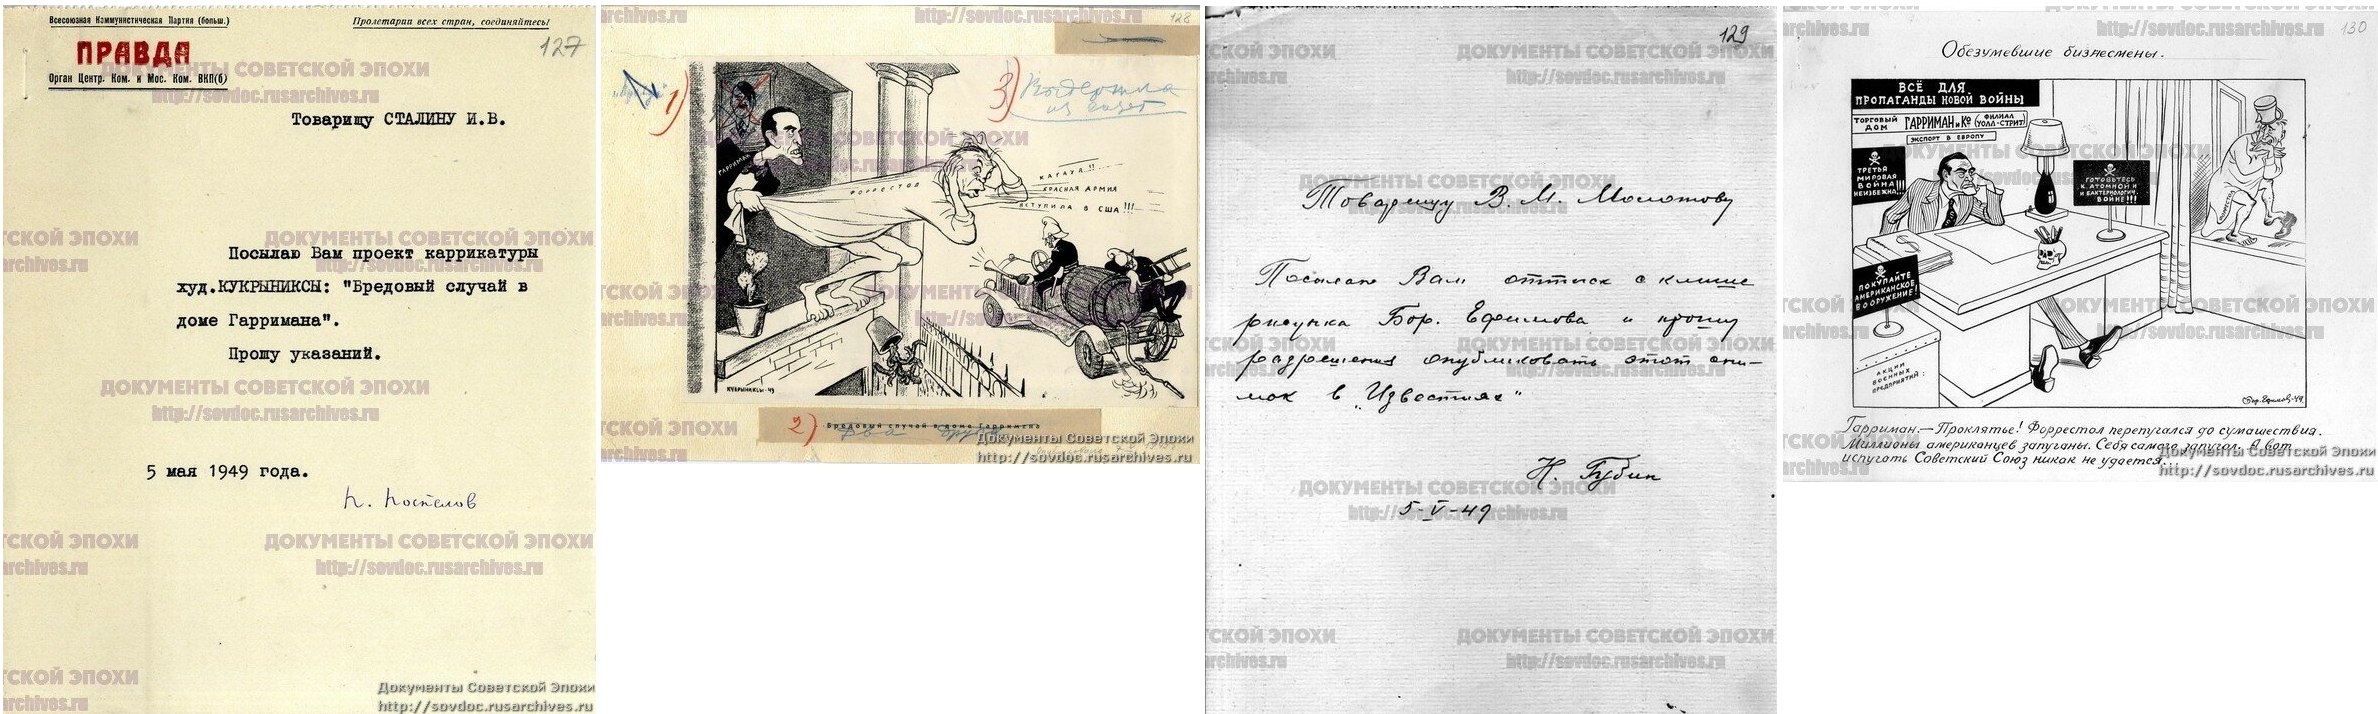 Всесоюзная Коммунистическая Партия (больш.)
Пролетарии всех стран, соединяйтесь!
127
ПРАВДА
Орган Центр. Ком. и Мос. Ком. ВКП(б)
Товарищу СТАЛИНУ И.В.
Посылаю Вам проект каррикатуры
худ.КУКРЫНИКСЫ: "Бредовый случай в
доме Гарримана".
Прошу указаний.
5 мая 1949 года.
П. Поспелов
Документы Советской Эпохи
http://sovdoc.rusarchives.ru
128
1)
3) Выдержка
из газет
ГАРРИМАН
ФОРРЕСТОЛ
КАРАУЛ!!
КРАСНАЯ АРМИЯ
ВСТУПИЛА В США!!!
КУКРЫНИКСЫ-49
2) Бредовый случай в доме Гарримана
Два друга
Документы Советской Эпохи
http://sovdoc.rusarchives.ru
129
Товарищу В. М. Молотову
Посылаю Вам оттиск с клише
рисунка Бор. Ефимова и прошу
разрешения опубликовать этот сни-
мок в "Известиях"
Н. Губин
5-V-49
130
Обезумевшие бизнесмены.
ВСЁ ДЛЯ
ПРОПАГАНДЫ НОВОЙ ВОЙНЫ
ТОРГОВЫЙ ДОМ ГАРРИМАН и Ко (ФИЛИАЛ УОЛЛ-СТРИТ)
ЭКСПОРТ В ЕВРОПУ
ТРЕТЬЯ
МИРОВАЯ
ВОЙНА
НЕИЗБЕЖНА!!!
ГОТОВЬТЕСЬ
К АТОМНОЙ И
И БАКТЕРИОЛОГИЧ.
ВОЙНЕ!!!
ПОКУПАЙТЕ
АМЕРИКАНСКОЕ
ВООРУЖЕНИЕ!
АКЦИИ
ВОЕННЫХ
ПРЕДПРИЯТИЙ:
Бор. Ефимов-49
Гарриман.— Проклятье! Форрестол перепугался до сумашествия.
Миллионы американцев запуганы. Себя самого запугал. А вот
испугать Советский Союз никак не удается...
Документы Советской Эпохи
http://sovdoc.rusarchives.ru
ДОКУМЕНТЫ СОВЕТСКОЙ ЭПОХИ
http://sovdoc.rusarchives.ru